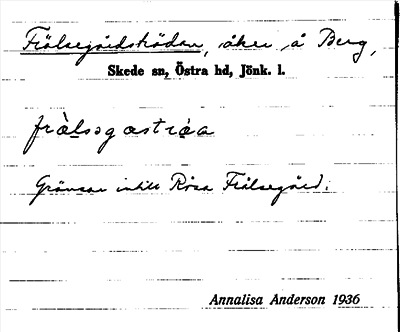 Frälsegårdströdan, åker å Berg,
Skede sn, Östra hd, Jönk. l.
frälsogastróa
Gränsar intill Rösa Frälsegård.
Annalisa Anderson 1936